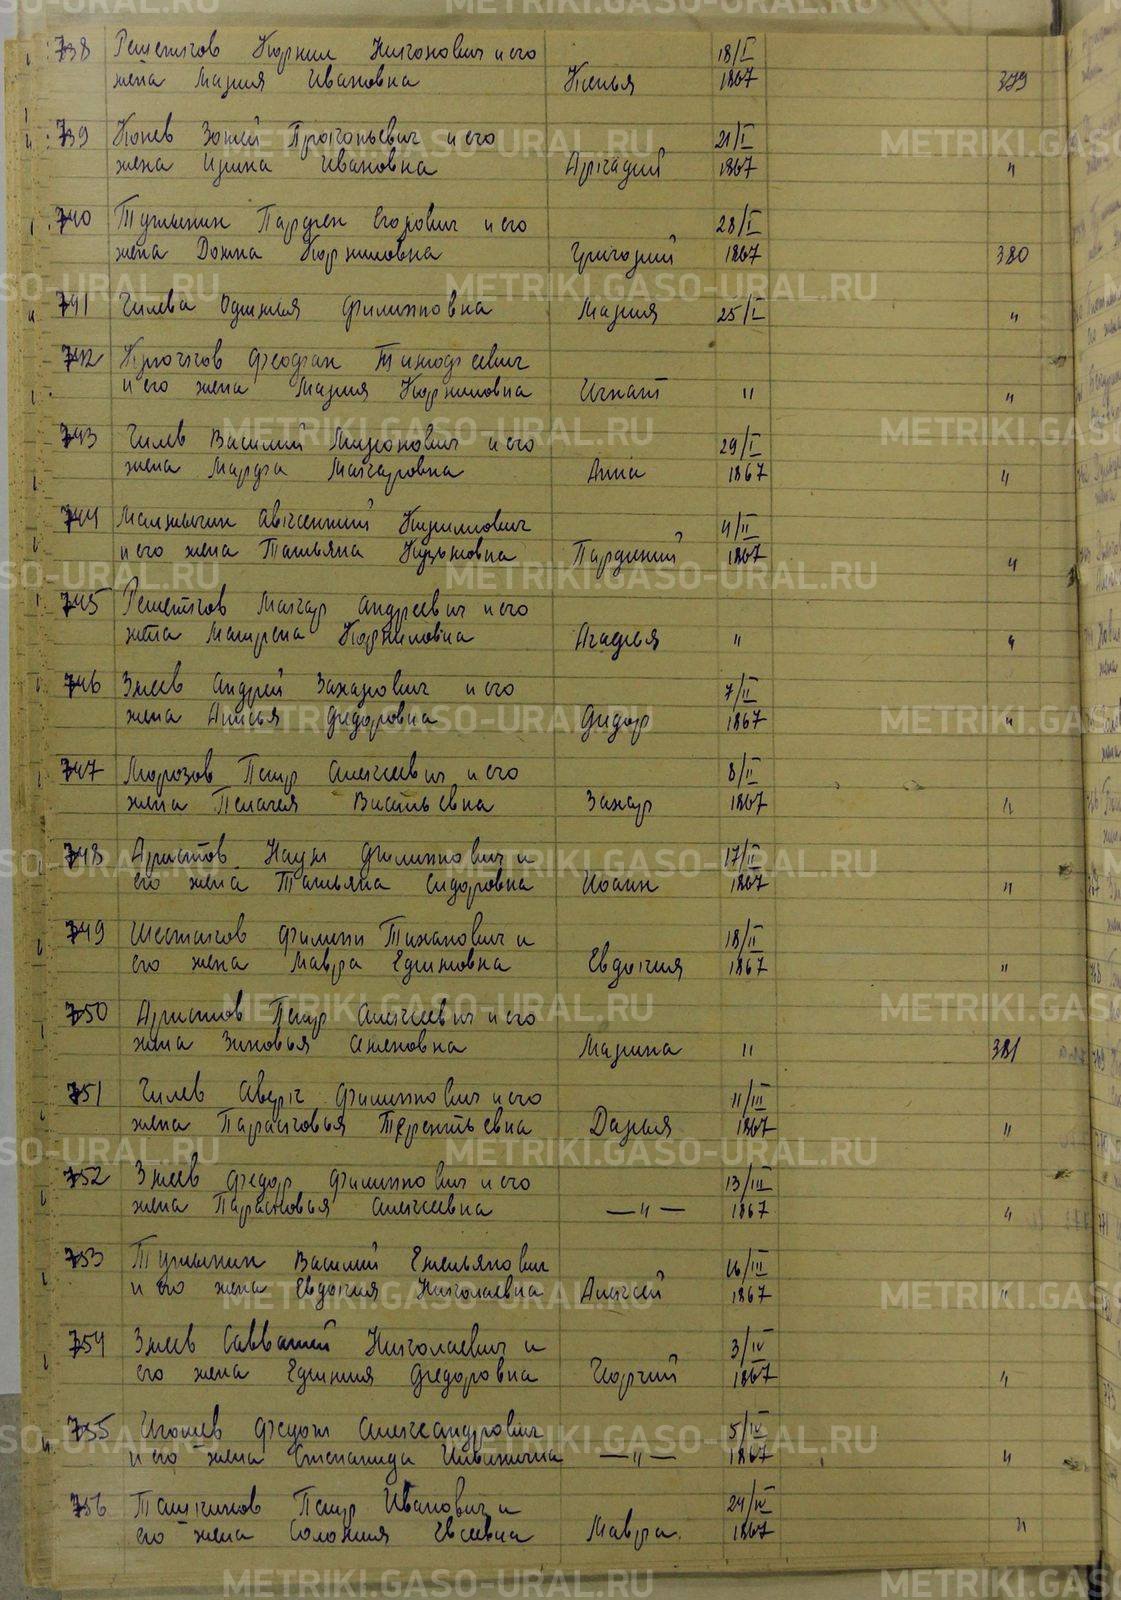 738 Решетков Корнил Никонович и его 18/I
жена Мария Ивановна Ксенья 1867 379
739 Конев Зотий Прокопьевич и его 21/I
жена Ирина Ивановна Аркадий 1867 "
740 Тугмынин Парфен Егорович и его 28/I
жена Домна Корниловна Григорий 1867 380
741 Гилева Офимья Филипповна Мария 25/I "
742 Крючков Феофан Тимофеевич
и его жена Мария Корниловна Игнат " "
743 Гилев Василий Миронович и его 29/I
жена Марфа Макаровна Анна 1867 "
744 Авксентий Кирилович 4/II
и его жена Татьяна Кузьмовна 1867 "
745 Решетков Макар Андреевич и его
жена Матрена Корниловна Агафья " "
746 Змеев Андрей Захарович и его 7/II
жена Анисья Федоровна Федор 1867 "
747 Морозов Петр Алексеевич и его 8/II
жена Пелагея Васильевна Захар 1867 "
748 Аристов Наум Филиппович и 17/II
его жена Татьяна Сидоровна Иоанн 1867 "
749 Шестаков Филипп Тиханович и 18/II
его жена Мавра Ефимовна Евдокия 1867 "
750 Аристов Петр Алексеевич и его
жена Зиновья Семеновна Марина " 381
751 Гилев Аверк Филиппович и его 11/III
жена Парасковья Терентьевна Дарья 1867 "
752 Змеев Федор Филиппович и его 13/III
жена Парасковья Алексеевна —"— 1867 "
753 Тугмынин Василий Емельянович 16/III
и его жена Евдокия Николаевна Алексей 1867 "
754 Змеев Савватей Николаевич и 3/IV
его жена Ефимия Федоровна Георгий 1867 "
755 Игошев Федот Александрович 5/IV
и его жена Степанида —"— 1867 "
756 Ташкинов Петр Иванович и 24/IV
его жена Соломия Евсеевна Мавра 1867 "
METRIKI.GASO-URAL.RU